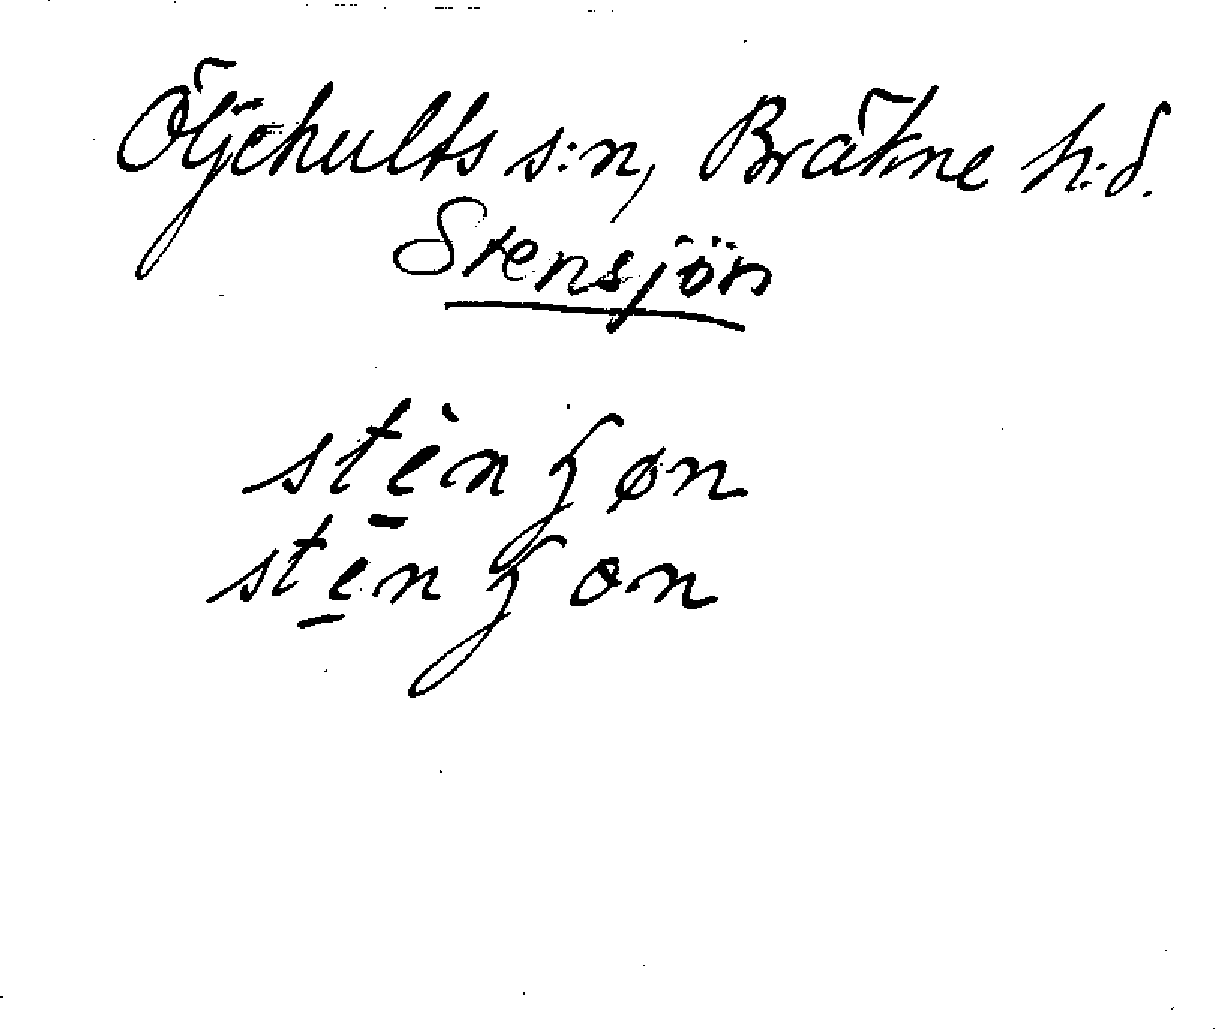 Öljehults s:n, Bräkne h:d.
Stensjön
stènʒøn
stenʒon